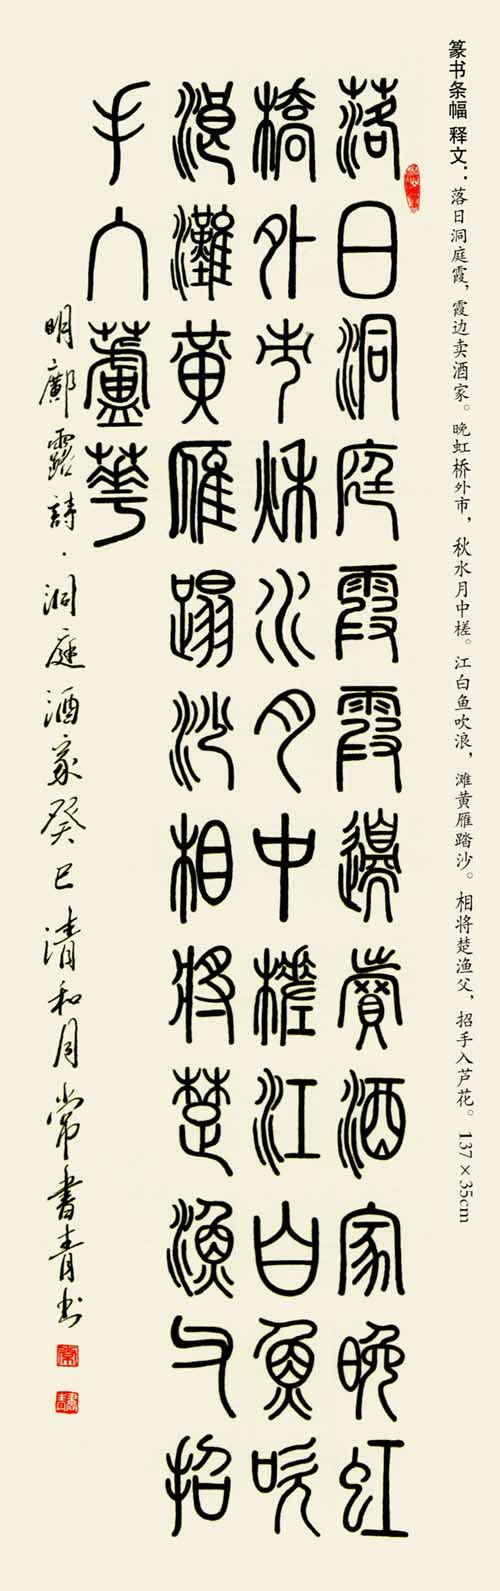 篆书条幅 释文：落日洞庭霞，霞边卖酒家。晚虹桥外市，秋水月中槎。江白鱼吹浪，滩黄雁踏沙。相将楚渔父，招手入芦花。137×35cm
落日洞庭霞霞邊賣酒家晚虹
橋外市秌水月中槎江白魚吹
浪灘黄雁蹋沙相將楚漁父招
手入蘆華
明鄺露詩·洞庭酒家癸巳清和月常書青书